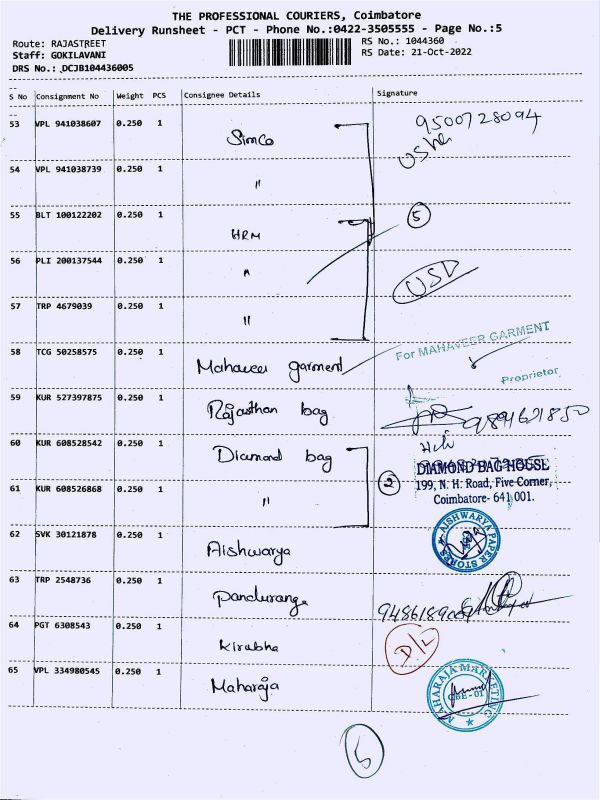 THE PROFESSIONAL COURIERS, Coimbatore
Delivery Runsheet - PCT - Phone No.:0422-3505555 - Page No.:5
Route: RAJASTREET
RS No.: 1044360
Staff: GOKILAVANI
RS Date: 21-Oct-2022
DRS No.: DCJB104436005
S No Consignment No Weight PCS Consignee Details Signature
53 VPL 941038607 0.250 1 Simco 9500728094
Usha
54 VPL 941038739 0.250 1 "
55 BLT 100122202 0.250 1 HRM 5
56 PLI 200137544 0.250 1 "
57 TRP 4679039 0.250 1 "
58 TCG 50258575 0.250 1 Mahaveer garment For MAHAVEER GARMENT
Proprietor
59 KUR 527397875 0.250 1 Rajasthan bag 9894621850
60 KUR 608528542 0.250 1 Diamond bag
DIAMOND BAG HOUSE
61 KUR 608526868 0.250 1 " 2 199, N. H. Road, Five Corner,
Coimbatore- 641 001.
62 SVK 30121878 0.250 1 Aishwarya AISHWARYA PAPER STORES
63 TRP 2548736 0.250 1 Pandurange
64 PGT 6308543 0.250 1 Kirubha D/L
65 VPL 334980545 0.250 1 Maharaja MAHARAJA MARKETING
CBE-01
5